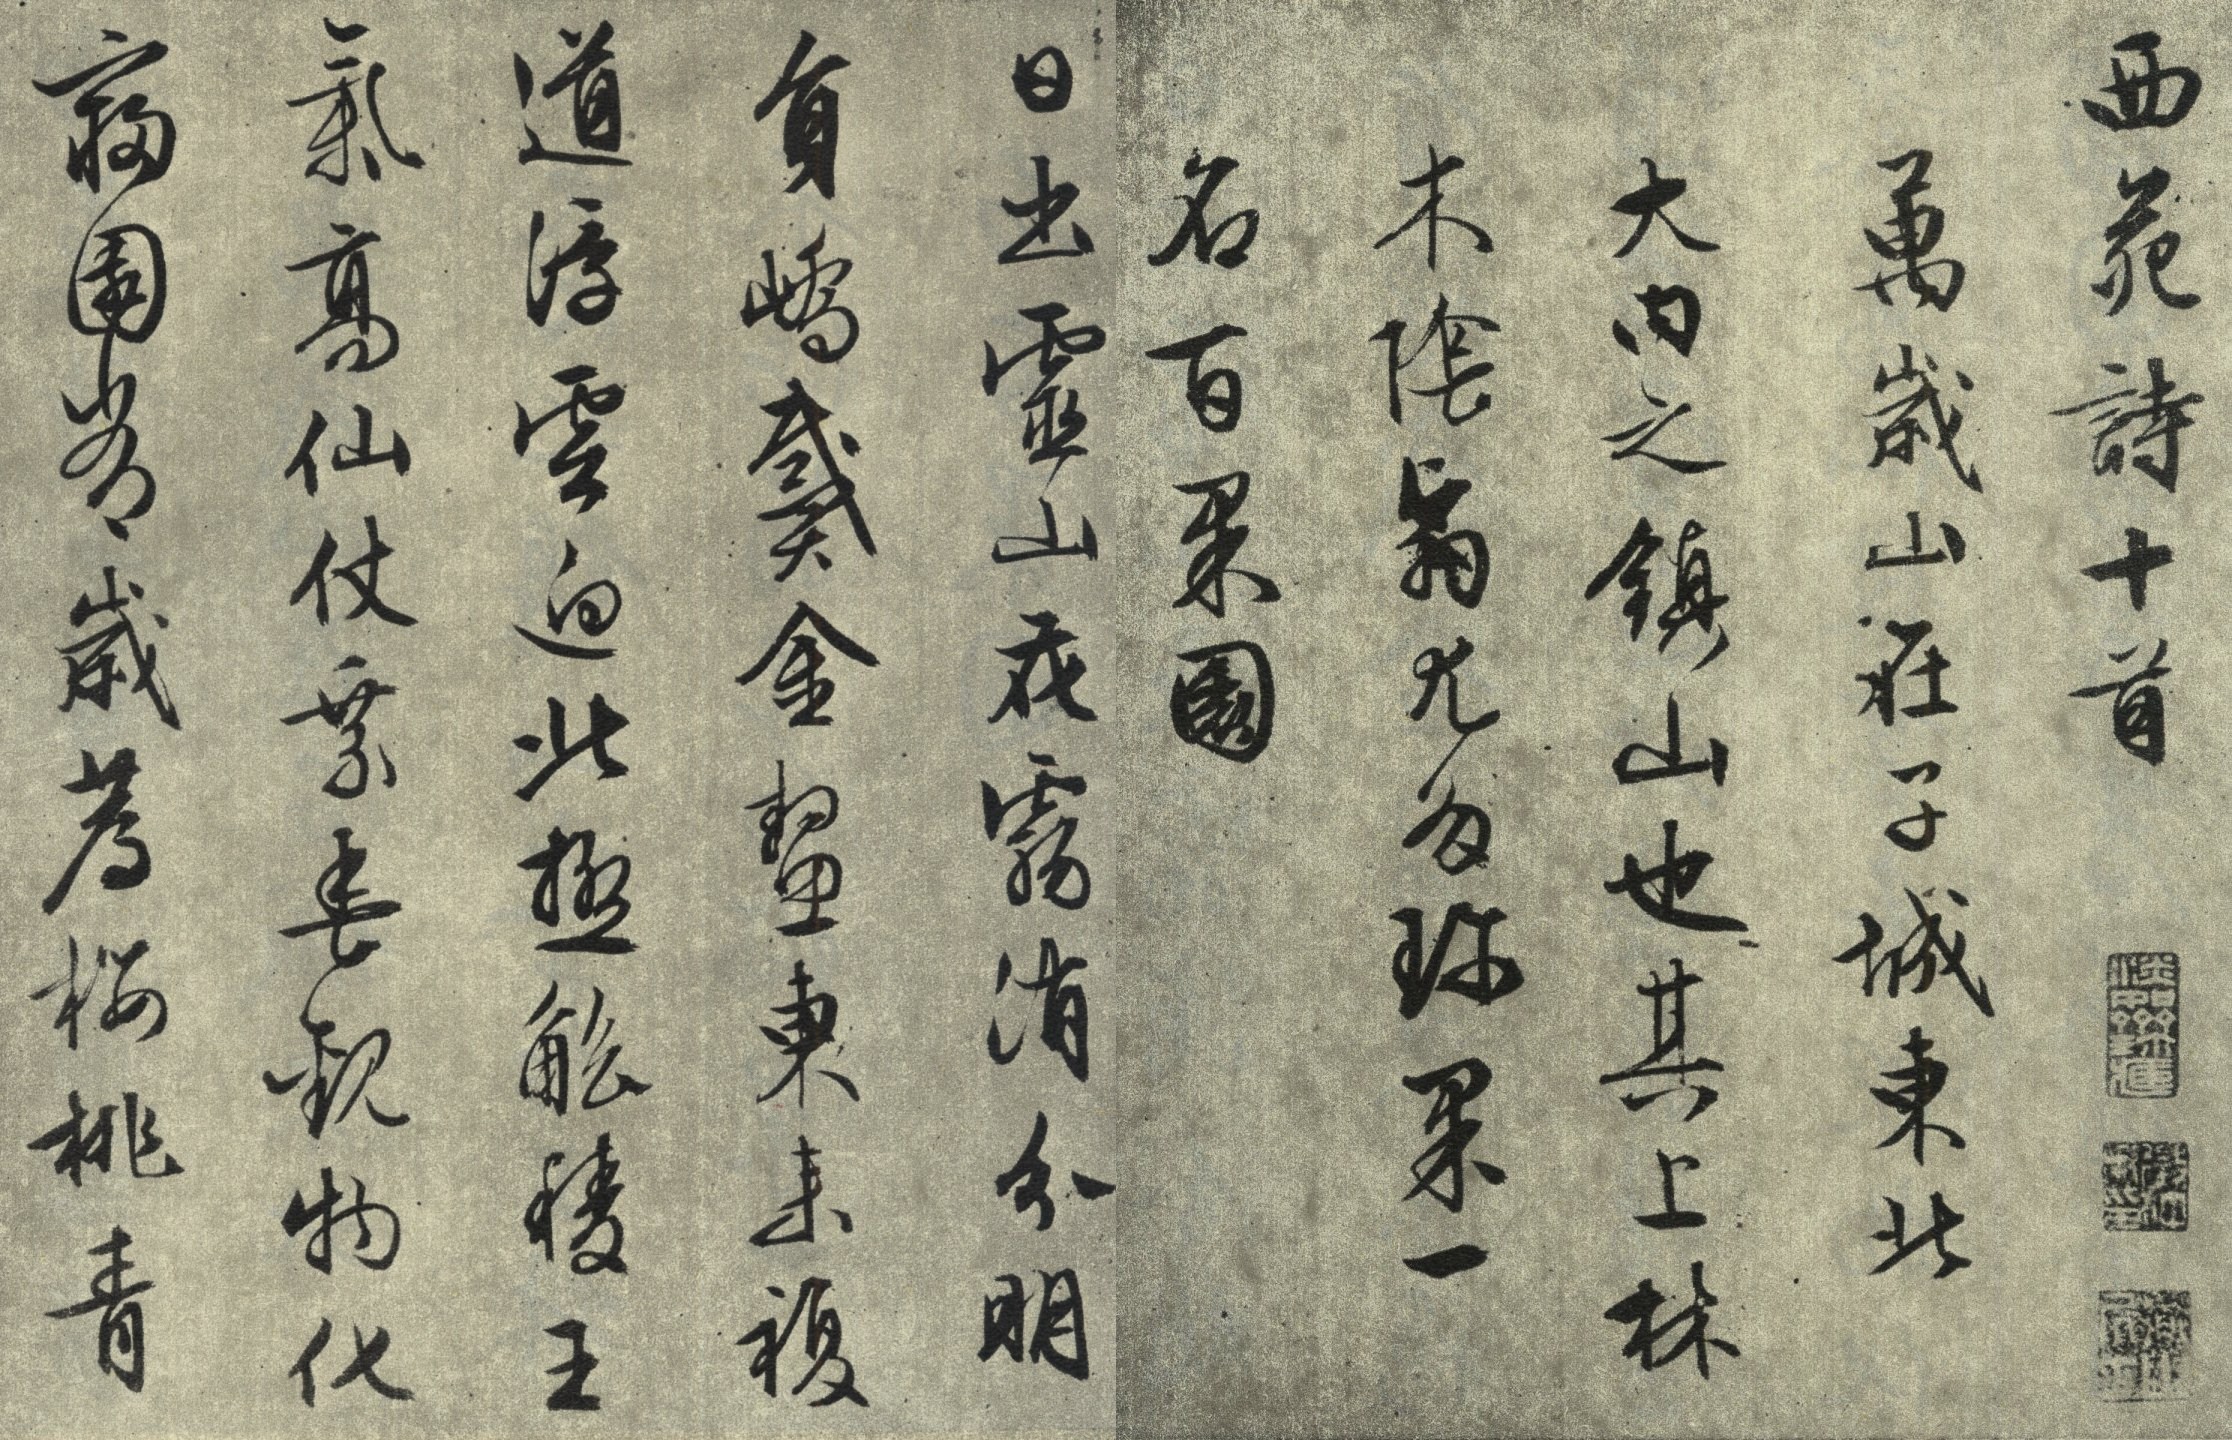 西苑詩十首
萬歲山在子城東北
大内之鎮山也其上林
木陰翳尤多珍果一
名百果園
日出靈山花霧消分明
員嶠戴金鰲東來複
道浮雲迥北極觚稜王
氣高仙仗乘春觀物化
寢園常歲薦櫻桃青